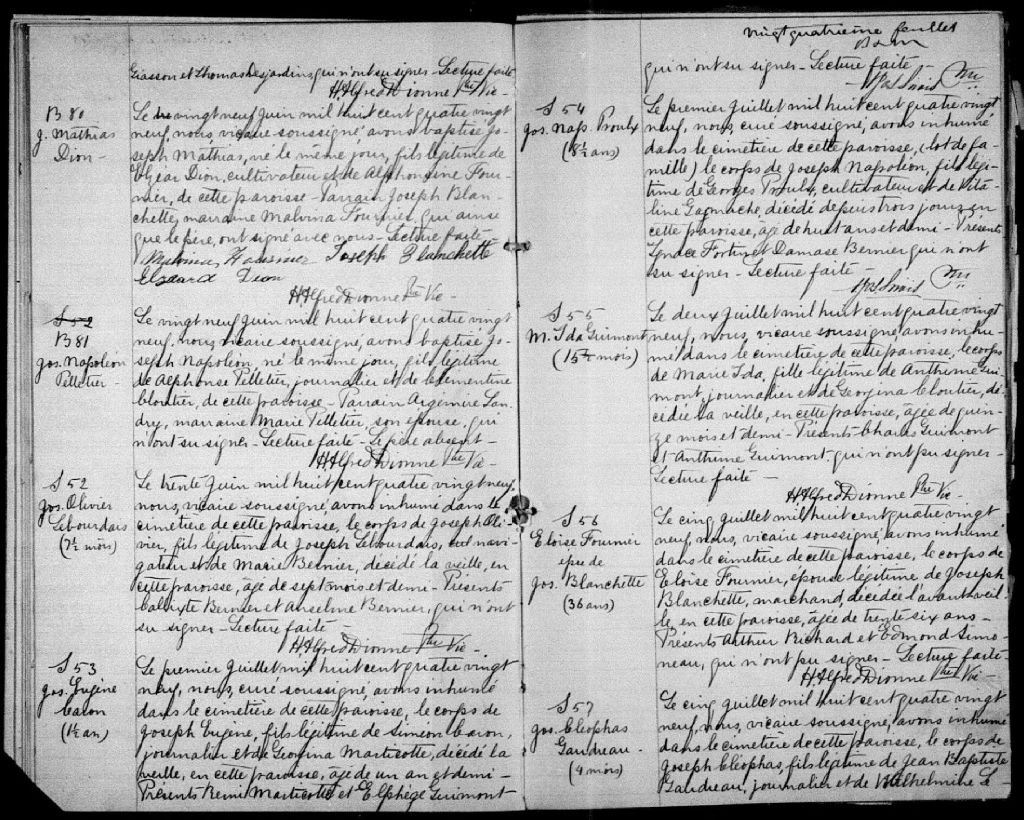 Giasson et Thomas Desjardins qui n'ont su signer - Lecture faite
H Alfred Dionne Ptre Vic -
B 80
J. Mathias
Dion -
Le vingt neuf juin mil huit cent quatre vingt
neuf, nous, vicaire soussigné, avons baptisé Jo-
seph Mathias, né le même jour, fils légitime de
Elzéar Dion, cultivateur et de Alphonsine Four-
nier, de cette paroisse - Parrain Joseph Blan-
chette, marraine Malvina Fournier, qui ainsi
que le père, ont signé avec nous - Lecture faite
Joseph Blanchette
Elzéard Dion
H Alfred Dionne Ptre Vic -
S 52
B 81
Jos. Napoléon
Pelletier -
Le vingt neuf juin mil huit cent quatre vingt
neuf, nous, vicaire soussigné, avons baptisé Jo-
seph Napoléon, né le même jour, fils légitime
de Alphonse Pelletier, journalier et de Clémentine
Cloutier, de cette paroisse - Parrain Argémire Lan-
dry, marraine Marie Pelletier, son épouse, qui
n'ont su signer - Lecture faite - Le père absent -
H Alfred Dionne Ptre Vic -
S 52
Jos. Olivier
Lebourdais
(7½ mois)
Le trente juin mil huit cent quatre vingt neuf,
nous, vicaire soussigné avons inhumé dans le
cimetière de cette paroisse, le corps de Joseph Oli-
vier, fils légitime de Joseph Lebourdais, navi-
gateur et de Marie Bernier, décédé la veille, en
cette paroisse, âgé de sept mois et demi - Présents
Calixte Bernier et Anselme Bernier, qui n'ont
su signer - Lecture faite -
H Alfred Dionne Ptre Vic -
S 53
Jos. Eugène
Caron
(1½ an)
Le premier Juillet mil huit cent quatre vingt
neuf, nous, curé soussigné, avons inhumé
dans le cimetière de cette paroisse, le corps de
Joseph Eugène, fils légitime de Siméon Caron,
journalier et de Georgina Marticotte, décédé la
veille, en cette paroisse, âgé de un an et demi -
Présents Rémi Marticotte et Elphège Guimont
vingt quatrième feuillet
qui n'ont su signer - Lecture faite -
S 54
Jos. Nap. Proulx
(8½ ans)
Le premier Juillet mil huit cent quatre vingt
neuf, nous, curé soussigné, avons inhumé
dans le cimetière de cette paroisse, (lot de fa-
mille) le corps de Joseph Napoléon, fils légi-
time de Georges Proulx, cultivateur et de Vita-
line Gamache, décédé depuis trois jours en
cette paroisse, âgé de huit ans et demi - Présents
Ignace Fortin et Damase Bernier qui n'ont
su signer - Lecture faite -
S 55
M. Ida Guimont
(15½ mois)
Le deux Juillet mil huit cent quatre vingt
neuf, nous, vicaire soussigné, avons inhu-
mé dans le cimetière de cette paroisse, le corps
de Marie Ida, fille légitime de Anthime Gui-
mont, journalier et de Georgina Cloutier, dé-
cédée la veille, en cette paroisse, âgée de quin-
ze mois et demi - Présents Charles Guimont
et Anthime Guimont, qui n'ont pu signer -
Lecture faite -
H Alfred Dionne Ptre Vic -
S 56
Eloise Fournier
épse de
Jos. Blanchette
(36 ans)
Le cinq Juillet mil huit cent quatre vingt
neuf, nous, vicaire soussigné, avons inhumé
dans le cimetière de cette paroisse, le corps de
Eloise Fournier, épouse légitime de Joseph
Blanchette, marchand, décédée l'avant veil-
le, en cette paroisse, âgée de trente six ans -
Présents Arthur Richard et Edmond Simo-
neau, qui n'ont pu signer - Lecture faite -
H Alfred Dionne Ptre Vic -
S 57
Jos. Cléophas
Gaudreau -
(4 mois)
Le cinq Juillet mil huit cent quatre vingt
neuf, nous, vicaire soussigné, avons inhumé
dans le cimetière de cette paroisse, le corps de
Joseph Cléophas, fils légitime de Jean Baptiste
Gaudreau, journalier et de Wilhelmine Le